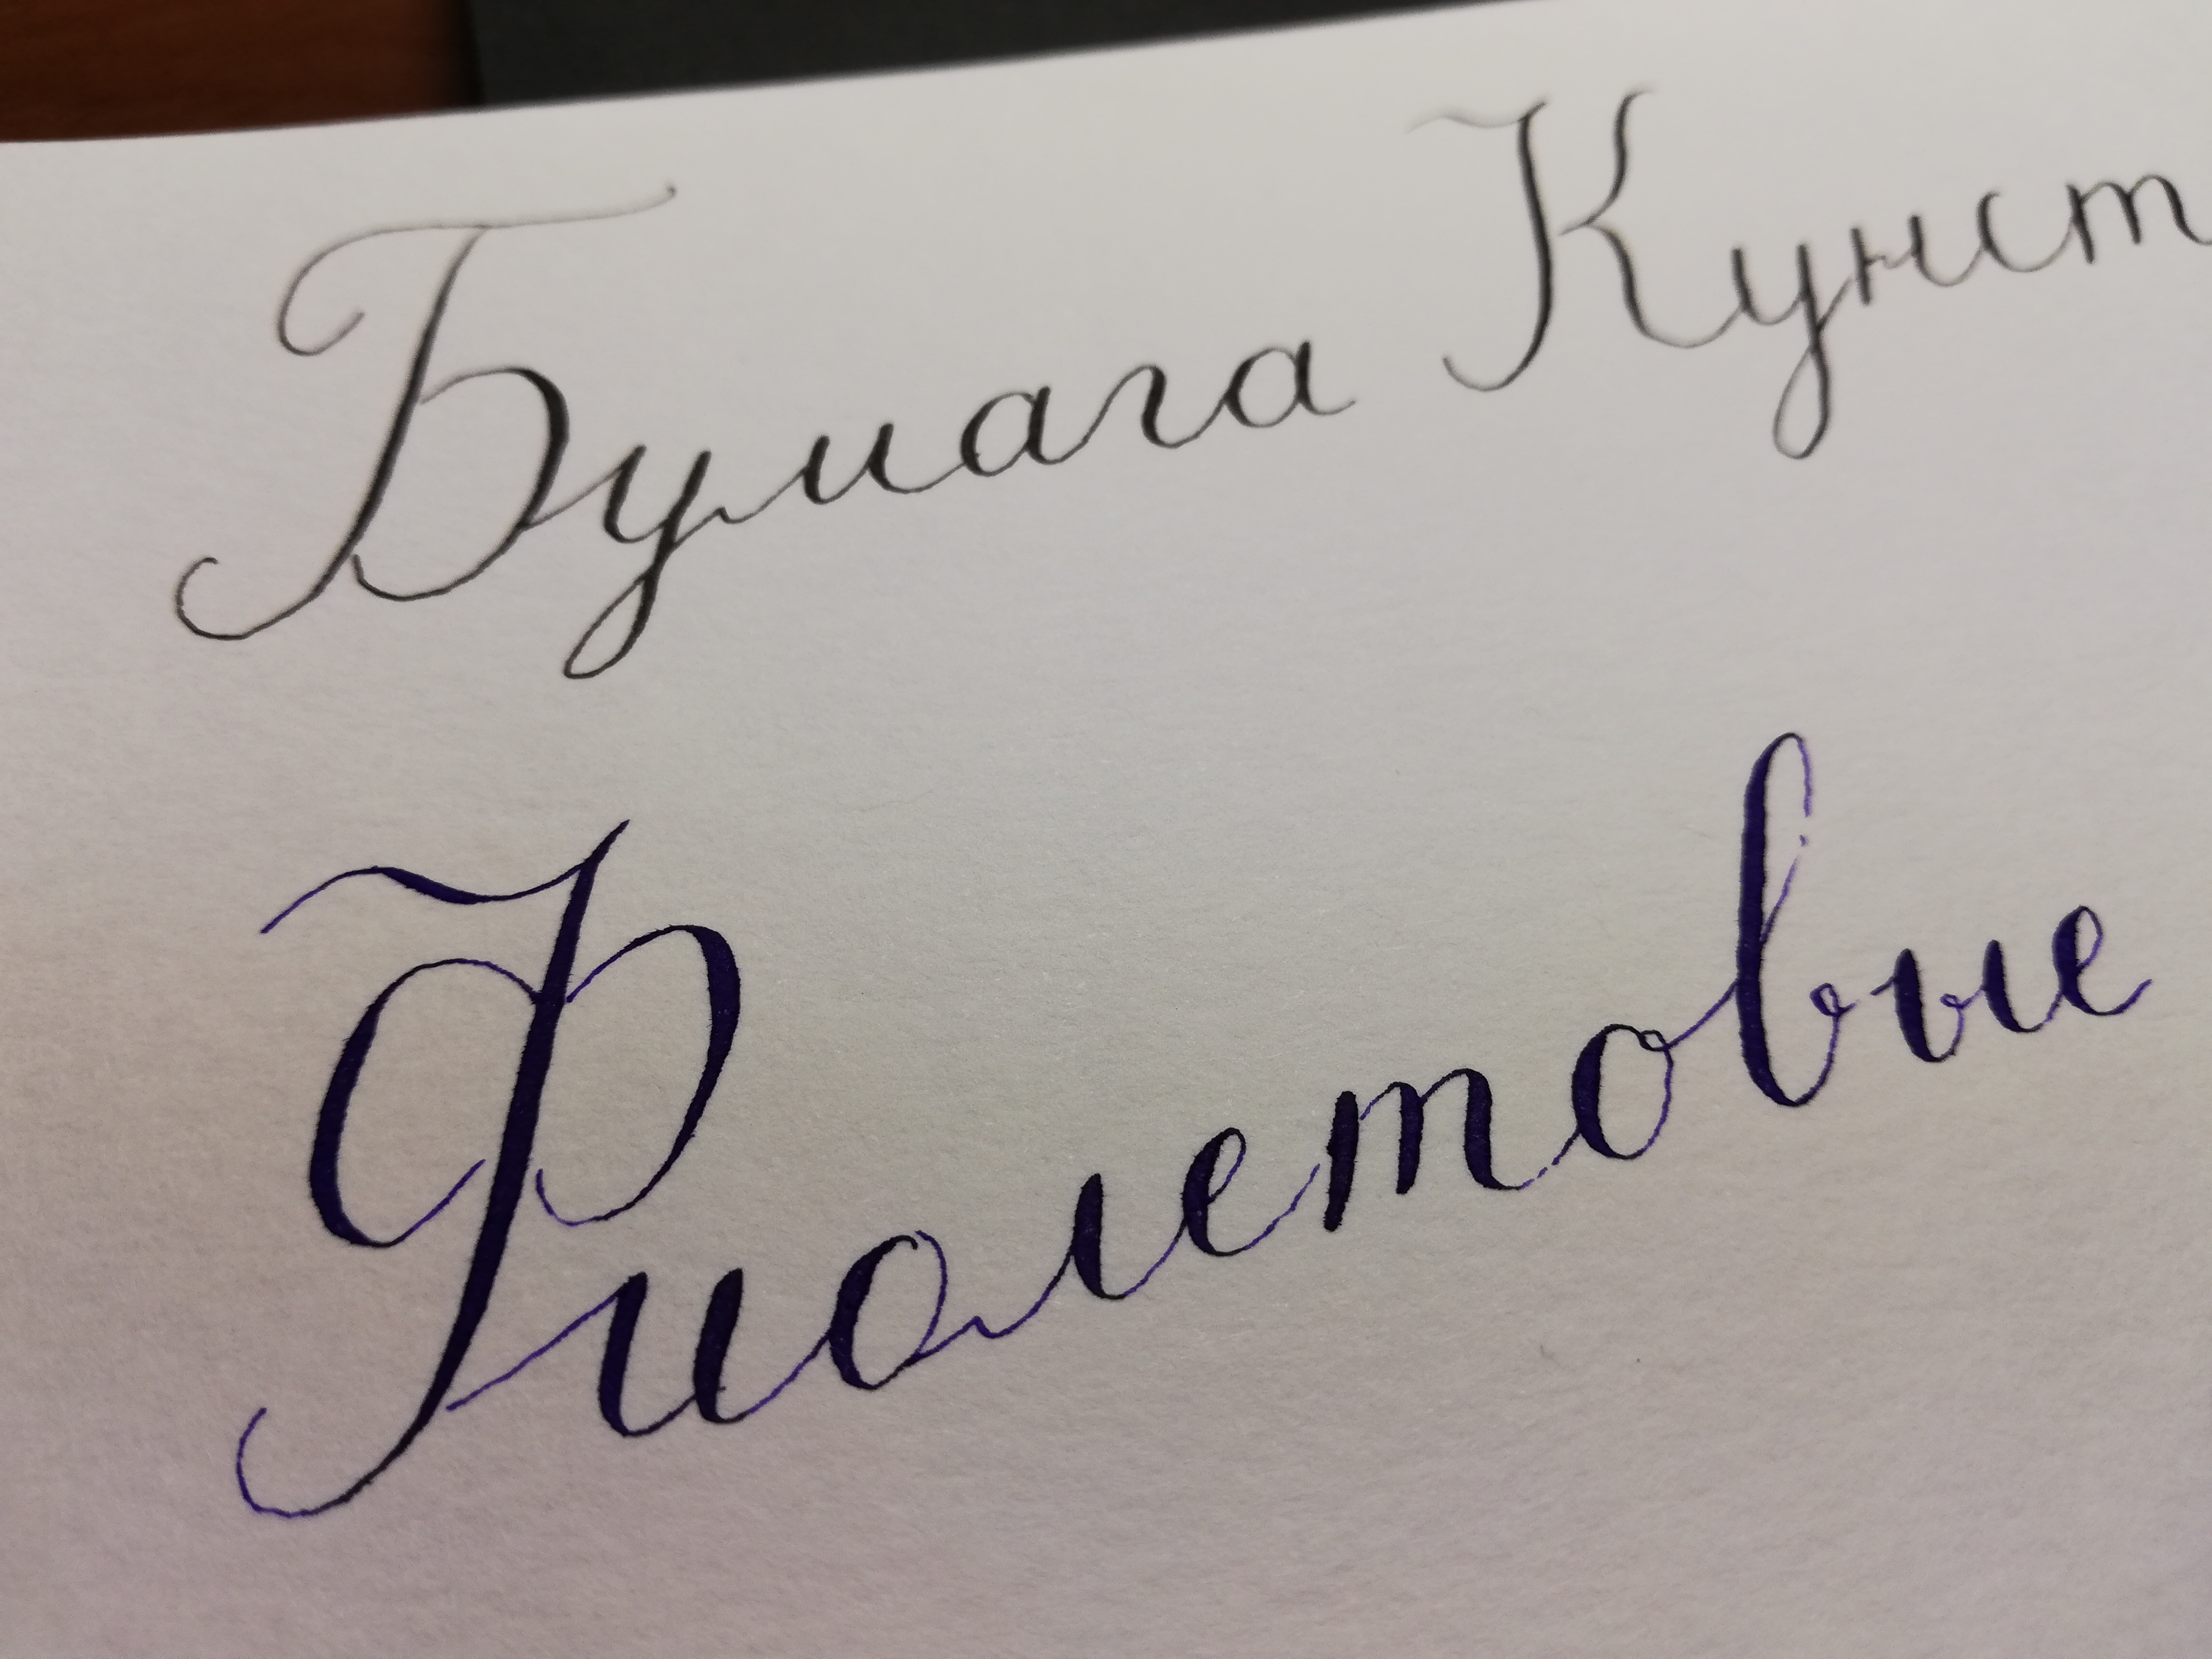 Бумага Кунст
Фиолетовые